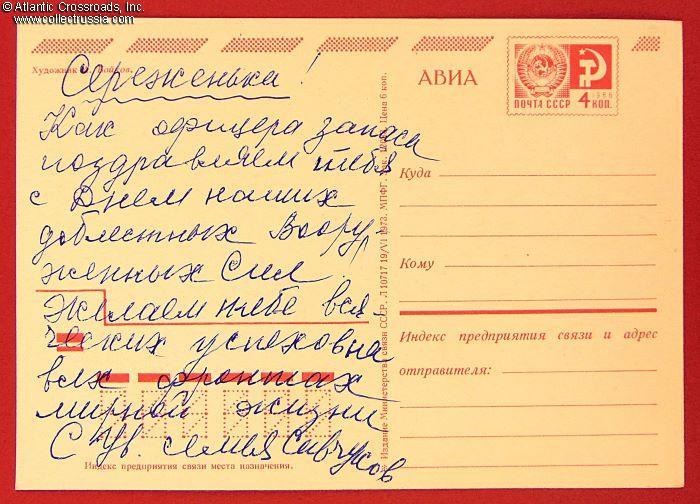 © Atlantic Crossroads, Inc.
www.collectrussia.com
Художник Бойков.
Сереженька!
Как офицера запаса
поздравляем тебя
с Днем наших
доблестных Воору-
женных Сил.
Желаем тебе вся-
ческих успехов на
всех фронтах
мирной жизни
С ув. семья Савчуков
Индекс предприятия связи места назначения.
Издание Министерства связи СССР. Л 10717 19/VI 1973. МПФГ. Цена 6 коп.
АВИА
ПОЧТА СССР
1966
4 КОП.
Куда
Кому
Индекс предприятия связи и адрес
отправителя: